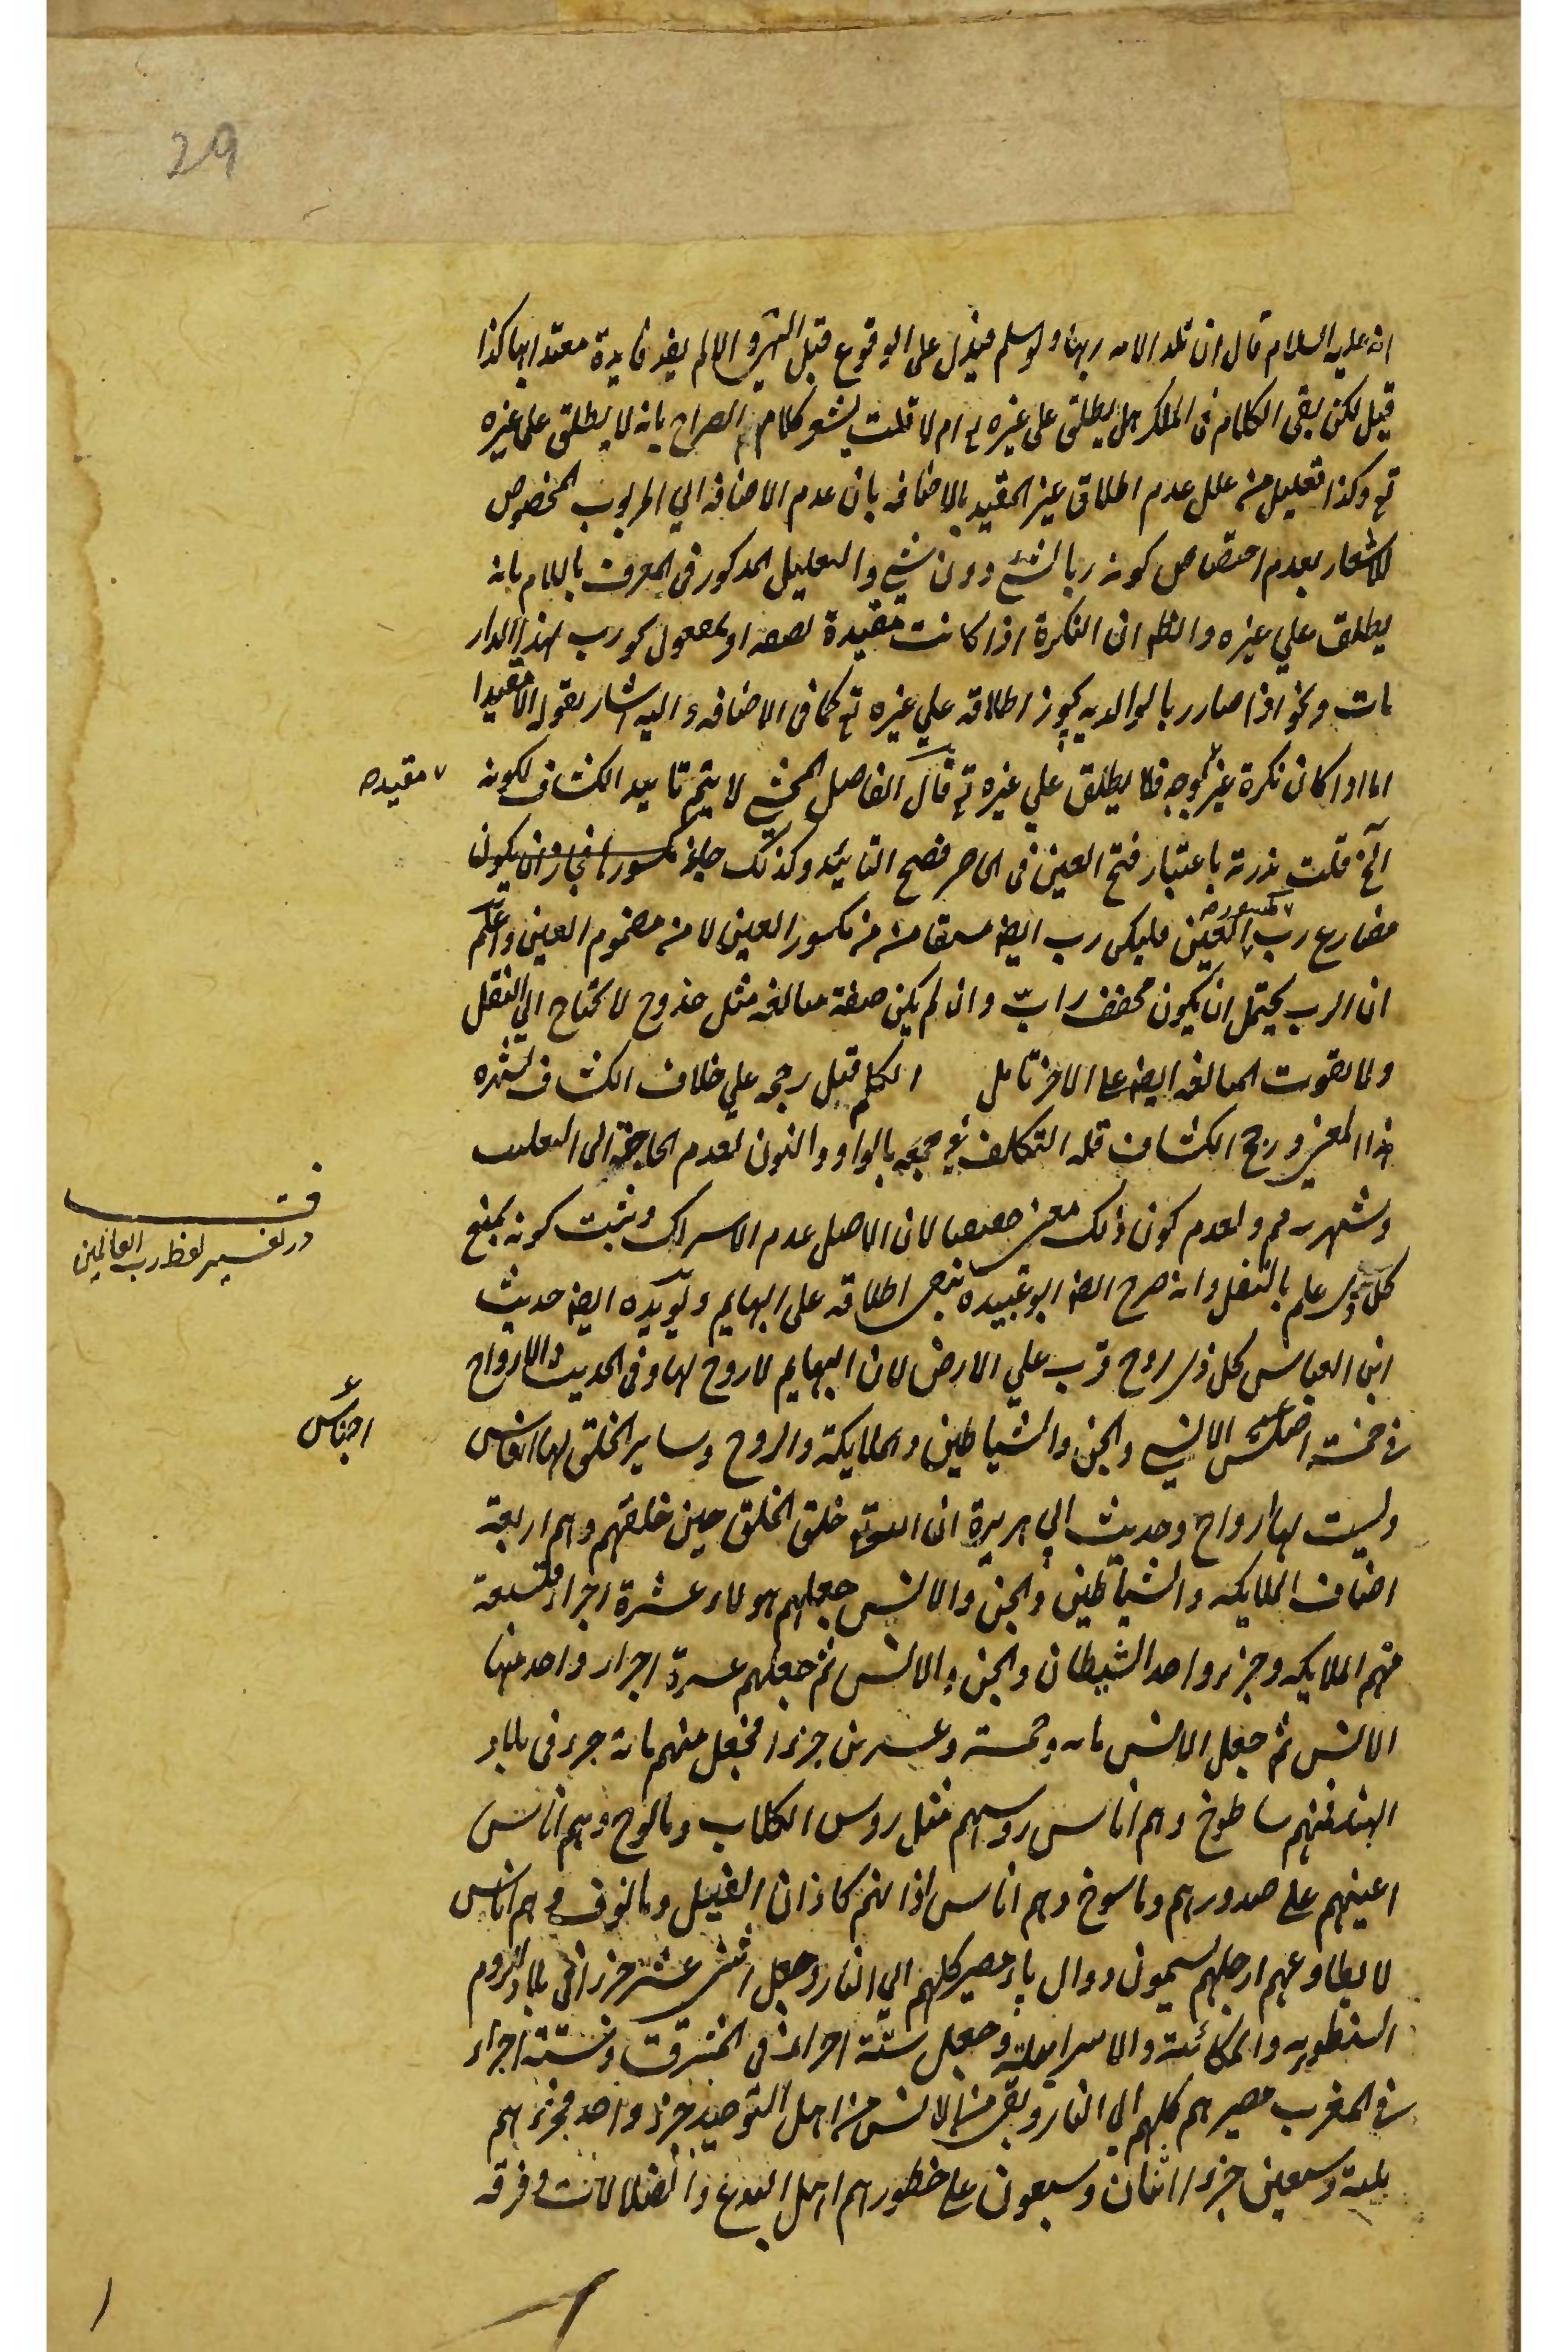 29
انه عليه السلام قال ان تلد الامه ربها ولو سلم فيدل على الوقوع قبل النهي والا لم يفد فايدة معتدا بها كذا
قيل لكن بقى الكلام فى الملك هل يطلق على غيره تع ام لا قلت يشعر كلام الصراح بانه لا يطلق على غيره
تع وكذا تعليل من علل عدم اطلاق غير المقيد بالاضافه بان عدم الاضافه الي المربوب المخصوص
للاشعار بعدم اختصاص كونه ربا لشئ دون شئ والتعليل المذكور فى المعرف باللام بانه
يطلق علي غيره والظ ان النكرة اذا كانت مقيدة بصفه او بمعمول كورب لهذا الدار
مات ونحو اذا صار ربا لوالديه يجوز اطلاقه علي غيره تع كما فى الاضافه واليه اشار بقوله الا مقيدا
اما اذا كان نكرة غير موجه فلا يطلق علي غيره تع قال الفاضل المحشي لا يتم تاييد الكشاف لكونه
مقيده
الخ قلت ندرته باعتبار فتح العين فى الماضى فصح التاييد وكذلك جاء مكسورا فجاز ان يكون
مضارع رب مكسور العين فليكن رب ايض مشتقا منه من مكسور العين لا من مضموم العين واعلم
ان الرب يحتمل ان يكون مخفف رابّ وان لم يكن صفة مبالغه مثل لا يحتاج الي النقل
ولا يفوت المبالغه ايض على الاخر تامل الكل قيل رجحه علي خلاف الكشاف لشهرة
هذا المعنى ورجح الكشاف قلة التكلف فى جمعه بالواو والنون لعدم الحاجة الى التغليب
وشهرته مم ولعدم كون ذلك معنى حقيقيا لان الاصل عدم الاشراك ويثبت كونه بمعنى
ف
در تفسير لفظ رب العالمين
كل ذى علم بالنقل وانه صرح ايض ابو عبيده بنص اطلاقه على البهايم ويويده ايض حديث
ابن العباس كل ذى روح دب علي الارض لان البهايم لا روح لها وفى الحديث الارواح
فى خمسة اصناف الانس والجن والشياطين والملايكة والروح وساير الخلق لها انفاس
اجناس
وليست لها ارواح وحديث ابي هريرة ان الله تع خلق الخلق حين خلقهم وهم اربعة
اصناف الملايكه والشياطين والجن والانس جعلهم هولاء عشرة اجزاء فتسعة
منهم الملايكه وجزء واحد الشيطان والجن والانس ثم جعلهم عشرة اجزاء واحد منها
الانس ثم جعل الانس مائه وخمسة وعشرين جزءا فجعل منهم مائة جزء فى بلاد
الهند فمنهم ساطوخ وهم اناس روسهم مثل روس الكلاب ومالوخ وهم اناس
اعينهم على صدورهم وماسوخ وهم اناس اذانهم كاذان الفيل ومالوف وهم اناس
لا يطاوعهم ارجلهم يسمون دوال پاء مصير كلهم الي النار وجعل اثنى عشر جزءا فى بلاد الروم
النسطوريه والملكائية والاسرايلية وجعل ستة اجزاء فى المشرق وستة اجزاء
فى المغرب مصيرهم كلهم الى النار وبقى من الانس من اهل التوحيد جزء واحد فجزءهم
ثلثة وسبعين جزءا اثنان وسبعون على خطورهم اهل البدع والضلالات وفرقه